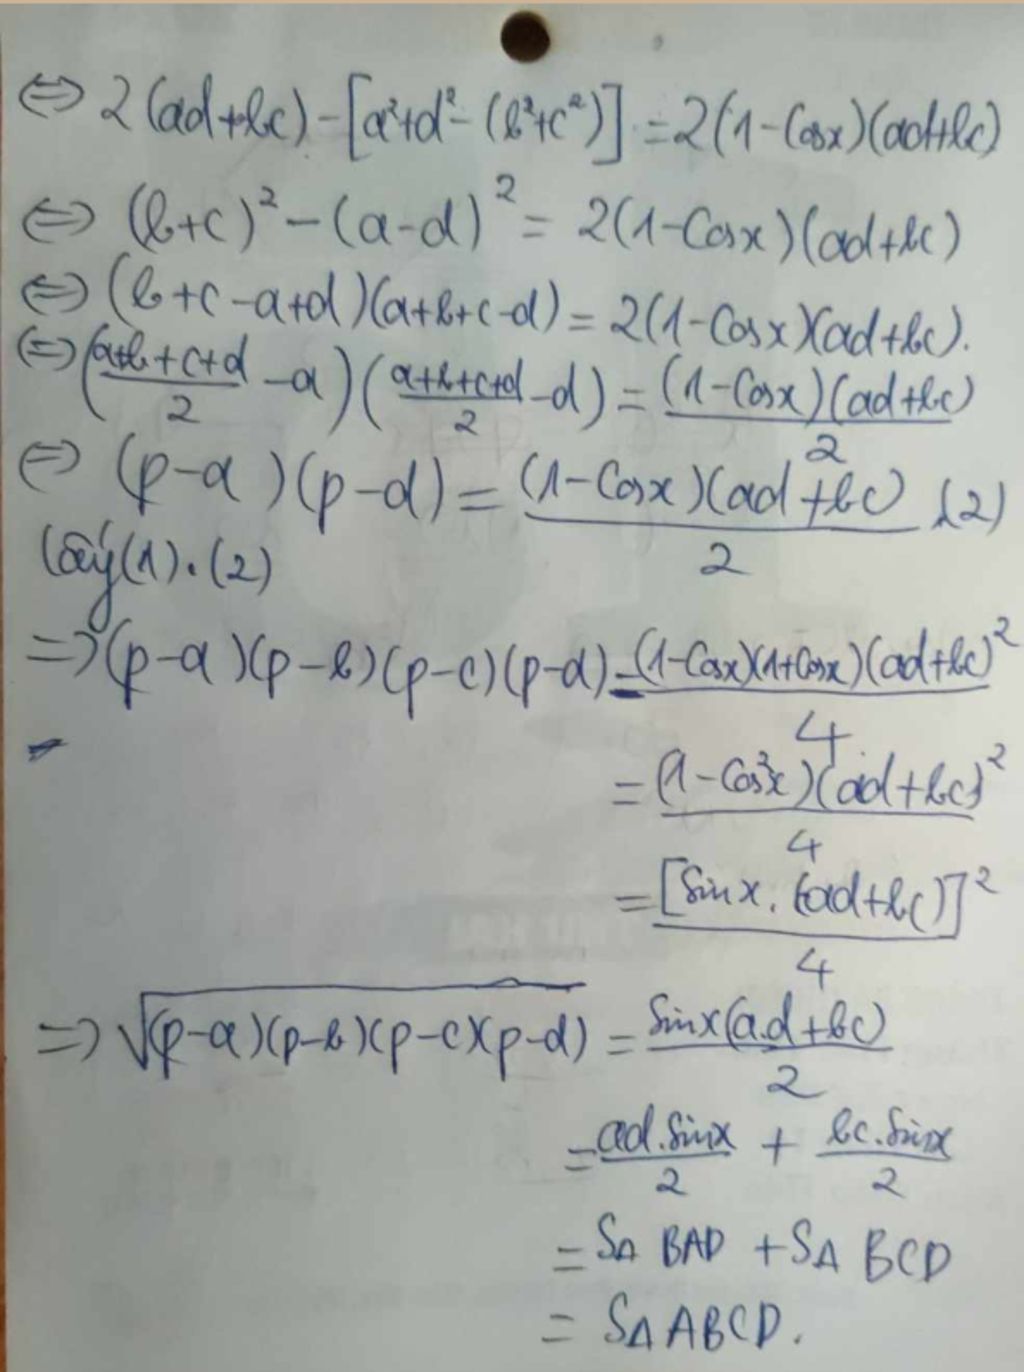 ⇔ 2(ad+bc) - [a²+d² - (b²+c²)] = 2(1-Cosx)(ad+bc)
⇔ (b+c)² - (a-d)² = 2(1-Cosx)(ad+bc)
⇔ (b+c-a+d)(a+b+c-d) = 2(1-Cosx)(ad+bc).
⇔ ((a+b+c+d)/2 - a)((a+b+c+d)/2 - d) = (1-Cosx)(ad+bc)/2
⇔ (p-a)(p-d) = (1-Cosx)(ad+bc)/2 (2)
Lấy (1).(2)
⇒ (p-a)(p-b)(p-c)(p-d) = (1-Cosx)(1+Cosx)(ad+bc)²/4
= (1-Cos²x)(ad+bc)²/4
= [Sinx.(ad+bc)]²/4
⇒ √(p-a)(p-b)(p-c)(p-d) = Sinx(a.d+bc)/2
= ad.Sinx/2 + bc.Sinx/2
= SΔ BAD + SΔ BCD
= SΔ ABCD.